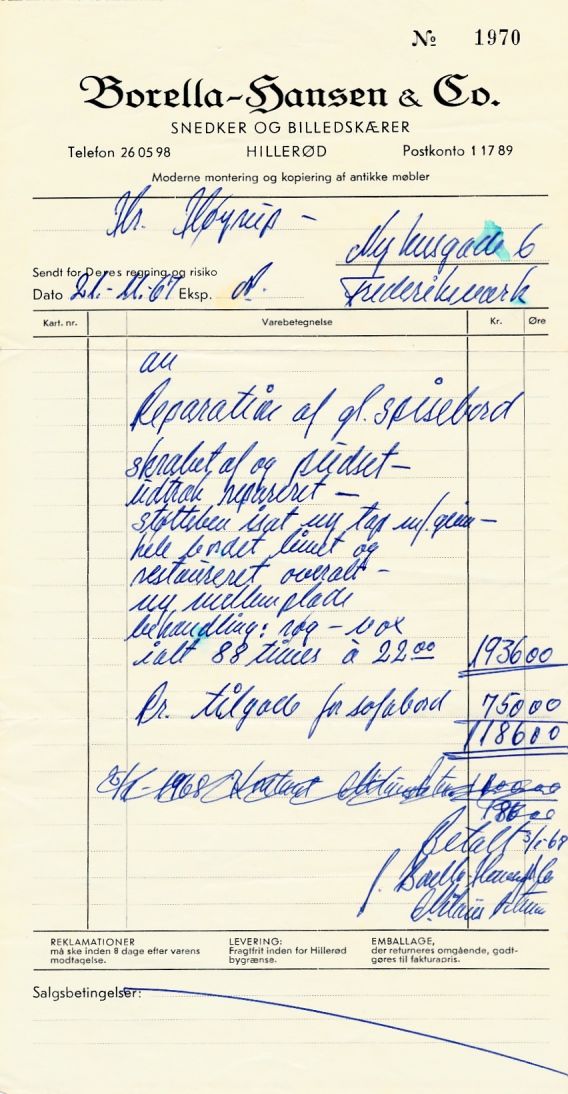 № 1970
Borella-Hansen & Co.
SNEDKER OG BILLEDSKÆRER
Telefon 26 05 98 HILLERØD Postkonto 1 17 89
Moderne montering og kopiering af antikke møbler
Hr. Høyrup –
Sendt for Deres regning og risiko
Dato 21.-11.-67 Eksp.
6
Frederiksværk
Kart. nr. Varebetegnelse Kr. Øre
an
Reparation af gl. spisebord
skrabet af og pudset –
udtræk repareret –
støtteben isat ny tap
hele bordet limet og
restaureret overalt –
ny mellemplade
behandling: røg – vox
ialt 88 times à 22 00 1936 00
Dr. tilgode for sofabord 750 00
1186 00
1968 Kontant 1000 00
186 00
Betalt 3/1-68
Borella-Hansen & Co
REKLAMATIONER
må ske inden 8 dage efter varens
modtagelse.
LEVERING:
Fragtfrit inden for Hillerød
bygrænse.
EMBALLAGE,
der returneres omgående, godt-
gøres til fakturapris.
Salgsbetingelser: